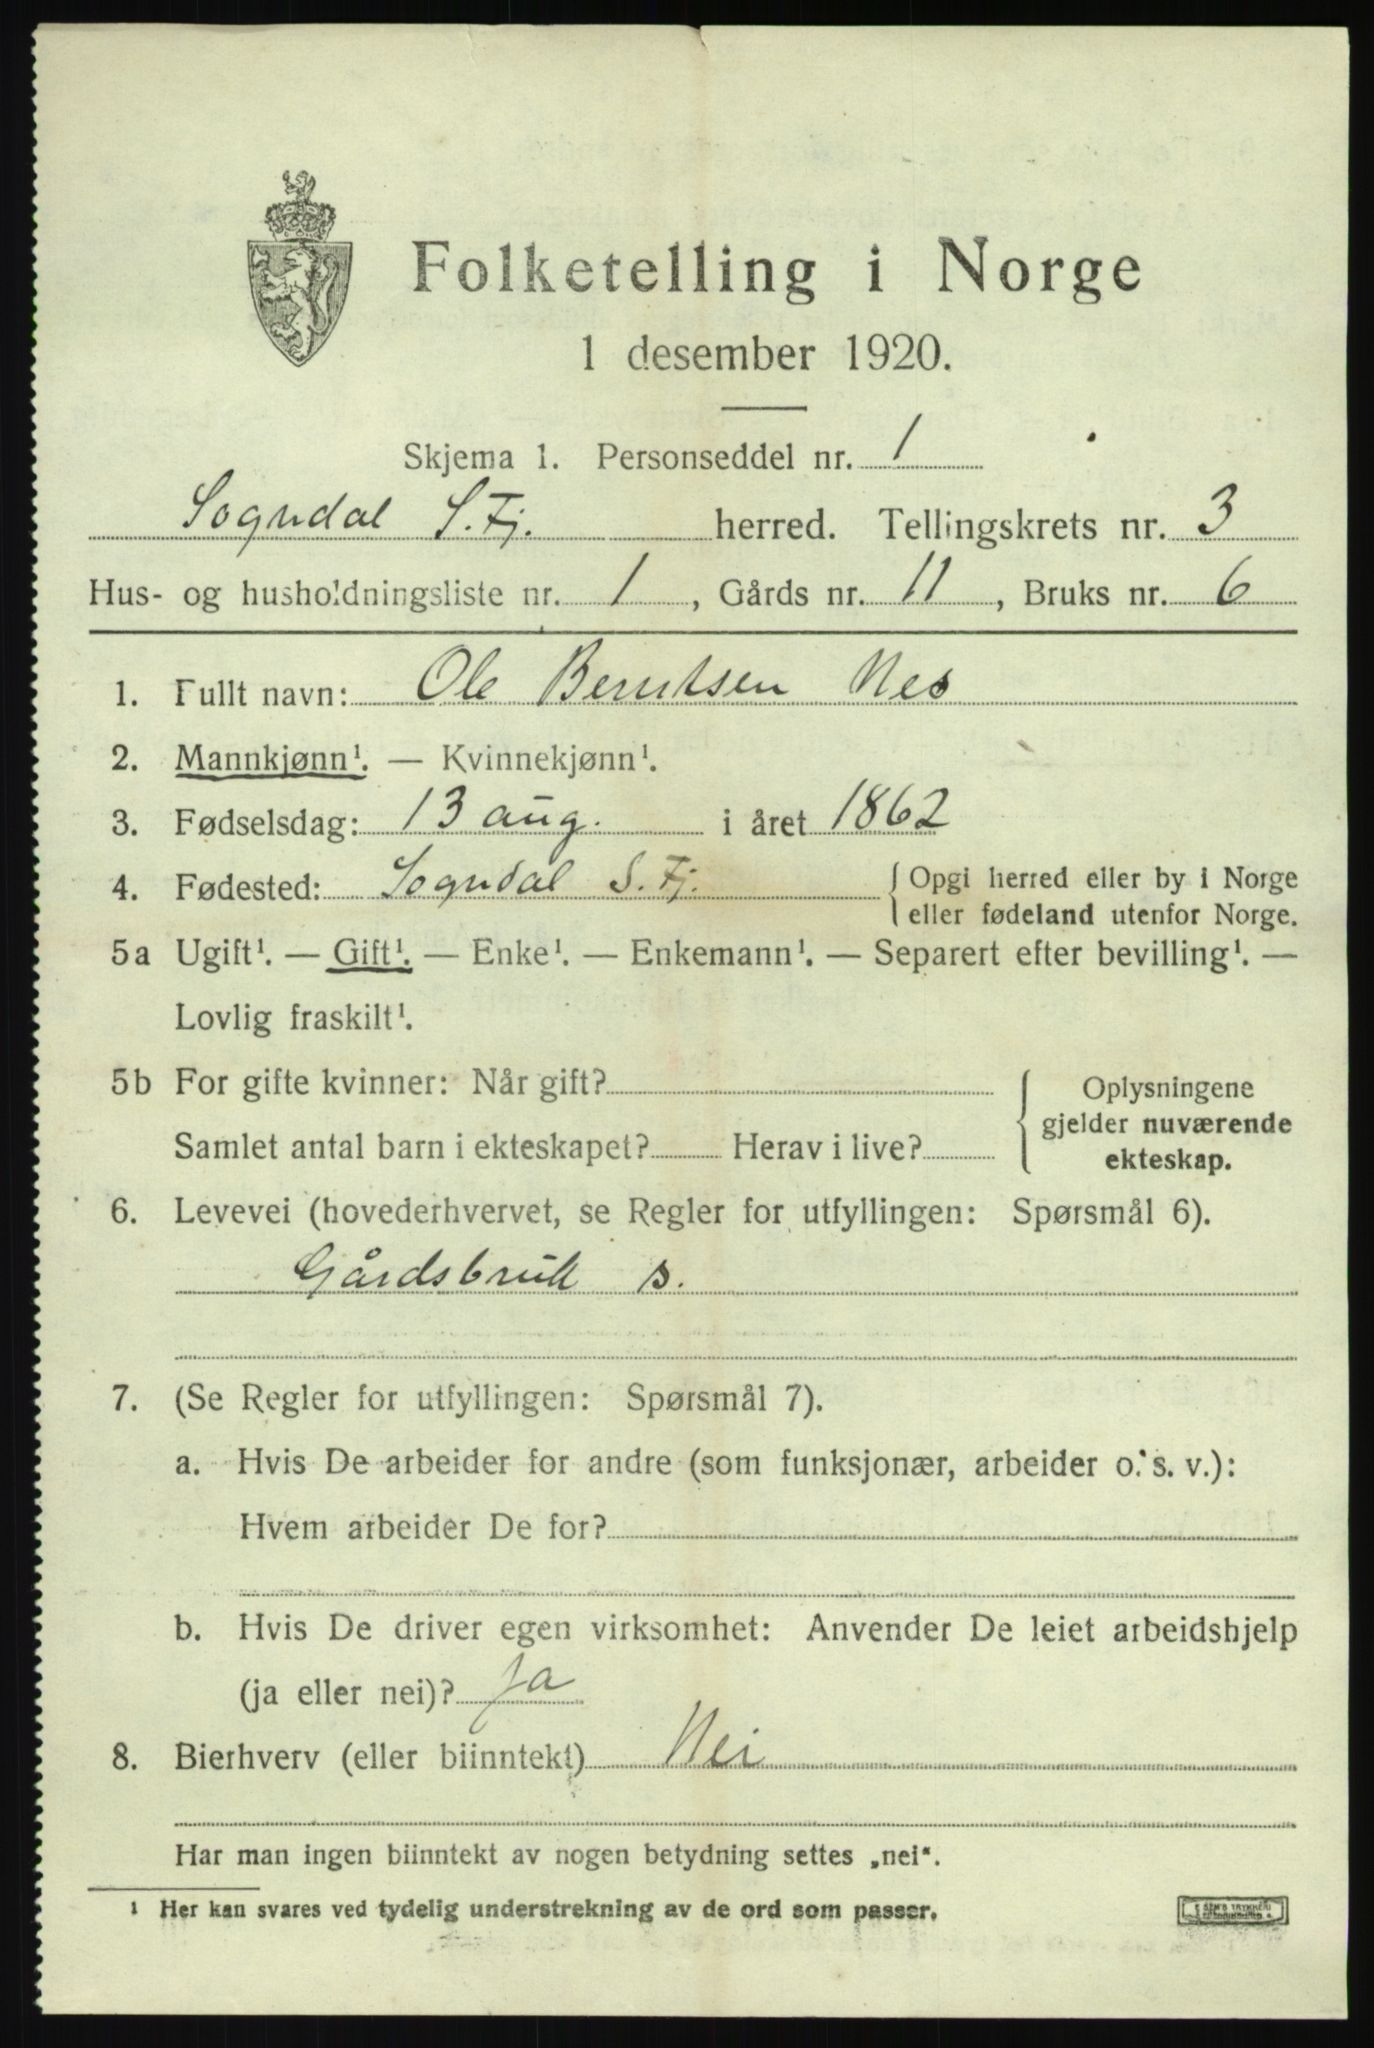 Folketelling i Norge
1 desember 1920.
Skjema 1. Personseddel nr. 1
Sogndal S. Fj. herred. Tellingskrets nr. 3
Hus- og husholdningsliste nr. 1, Gårds nr. 11, Bruks nr. 6
1. Fullt navn: Ole Berntsen Nes
2. Mannkjønn¹. — Kvinnekjønn¹.
3. Fødselsdag: 13 aug. i året 1862
4. Fødested: Sogndal S. Fj. { Opgi herred eller by i Norge
eller fødeland utenfor Norge.
5a Ugift¹. — Gift¹. — Enke¹. — Enkemann¹. — Separert efter bevilling¹. —
Lovlig fraskilt¹.
5b For gifte kvinner: Når gift?
Samlet antal barn i ekteskapet? Herav i live?
{ Oplysningene
gjelder nuværende
ekteskap.
6. Levevei (hovederhvervet, se Regler for utfyllingen: Spørsmål 6).
Gårdsbruk s.
7. (Se Regler for utfyllingen: Spørsmål 7).
a. Hvis De arbeider for andre (som funksjonær, arbeider o. s. v.):
Hvem arbeider De for?
b. Hvis De driver egen virksomhet: Anvender De leiet arbeidshjelp
(ja eller nei)? Ja
8. Bierhverv (eller biinntekt) Nei
Har man ingen biinntekt av nogen betydning settes „nei“.
¹ Her kan svares ved tydelig understrekning av de ord som passer.